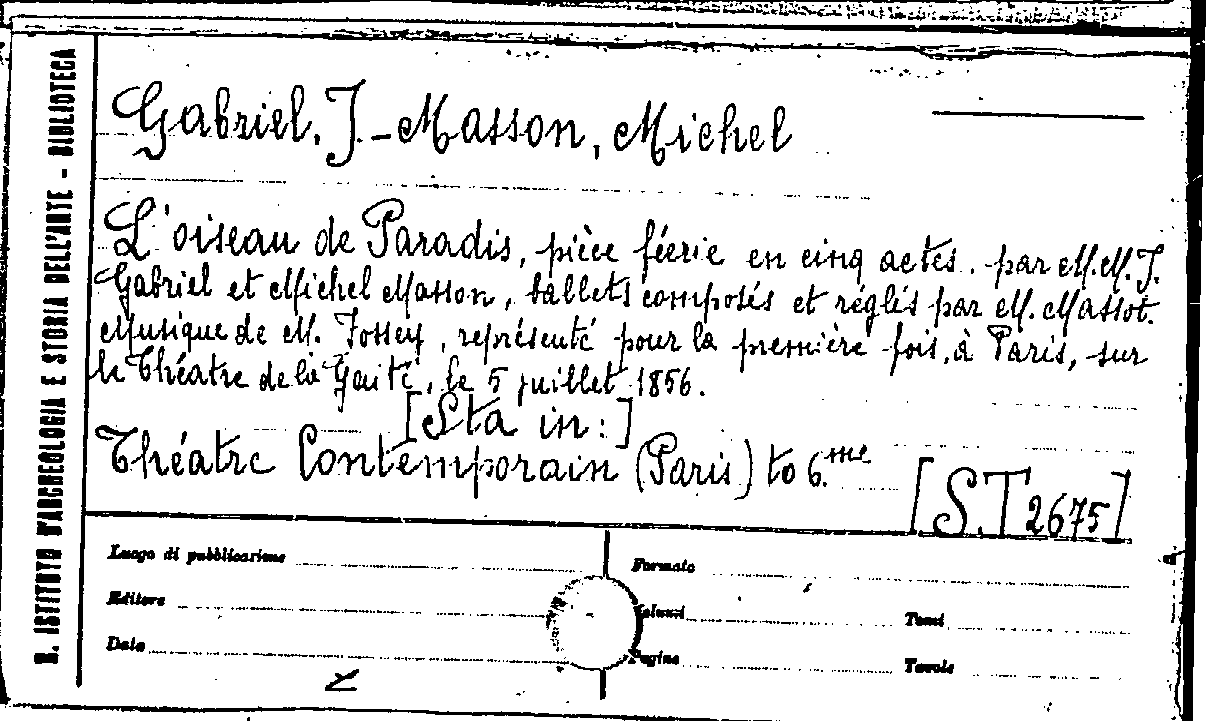 R. ISTITUTO D'ARCHEOLOGIA E STORIA DELL'ARTE - BIBLIOTECA
Gabriel, J.-Masson, Michel
L'oiseau de Paradis, pièce féerie en cinq actes. par M.M. J.
Gabriel et Michel Masson, ballets composés et réglés par M. Massot.
Musique de M. Fossey, représenté pour la première fois, à Paris, sur
le Théatre de la Gaité, le 5 juillet 1856.
[Sta in:]
Théatre Contemporain (Paris) to 6.me
[S.T 2675]
Luogo di pubblicazione
Formato
Editore
Volumi
Tomi
Data
Pagine
Tavole